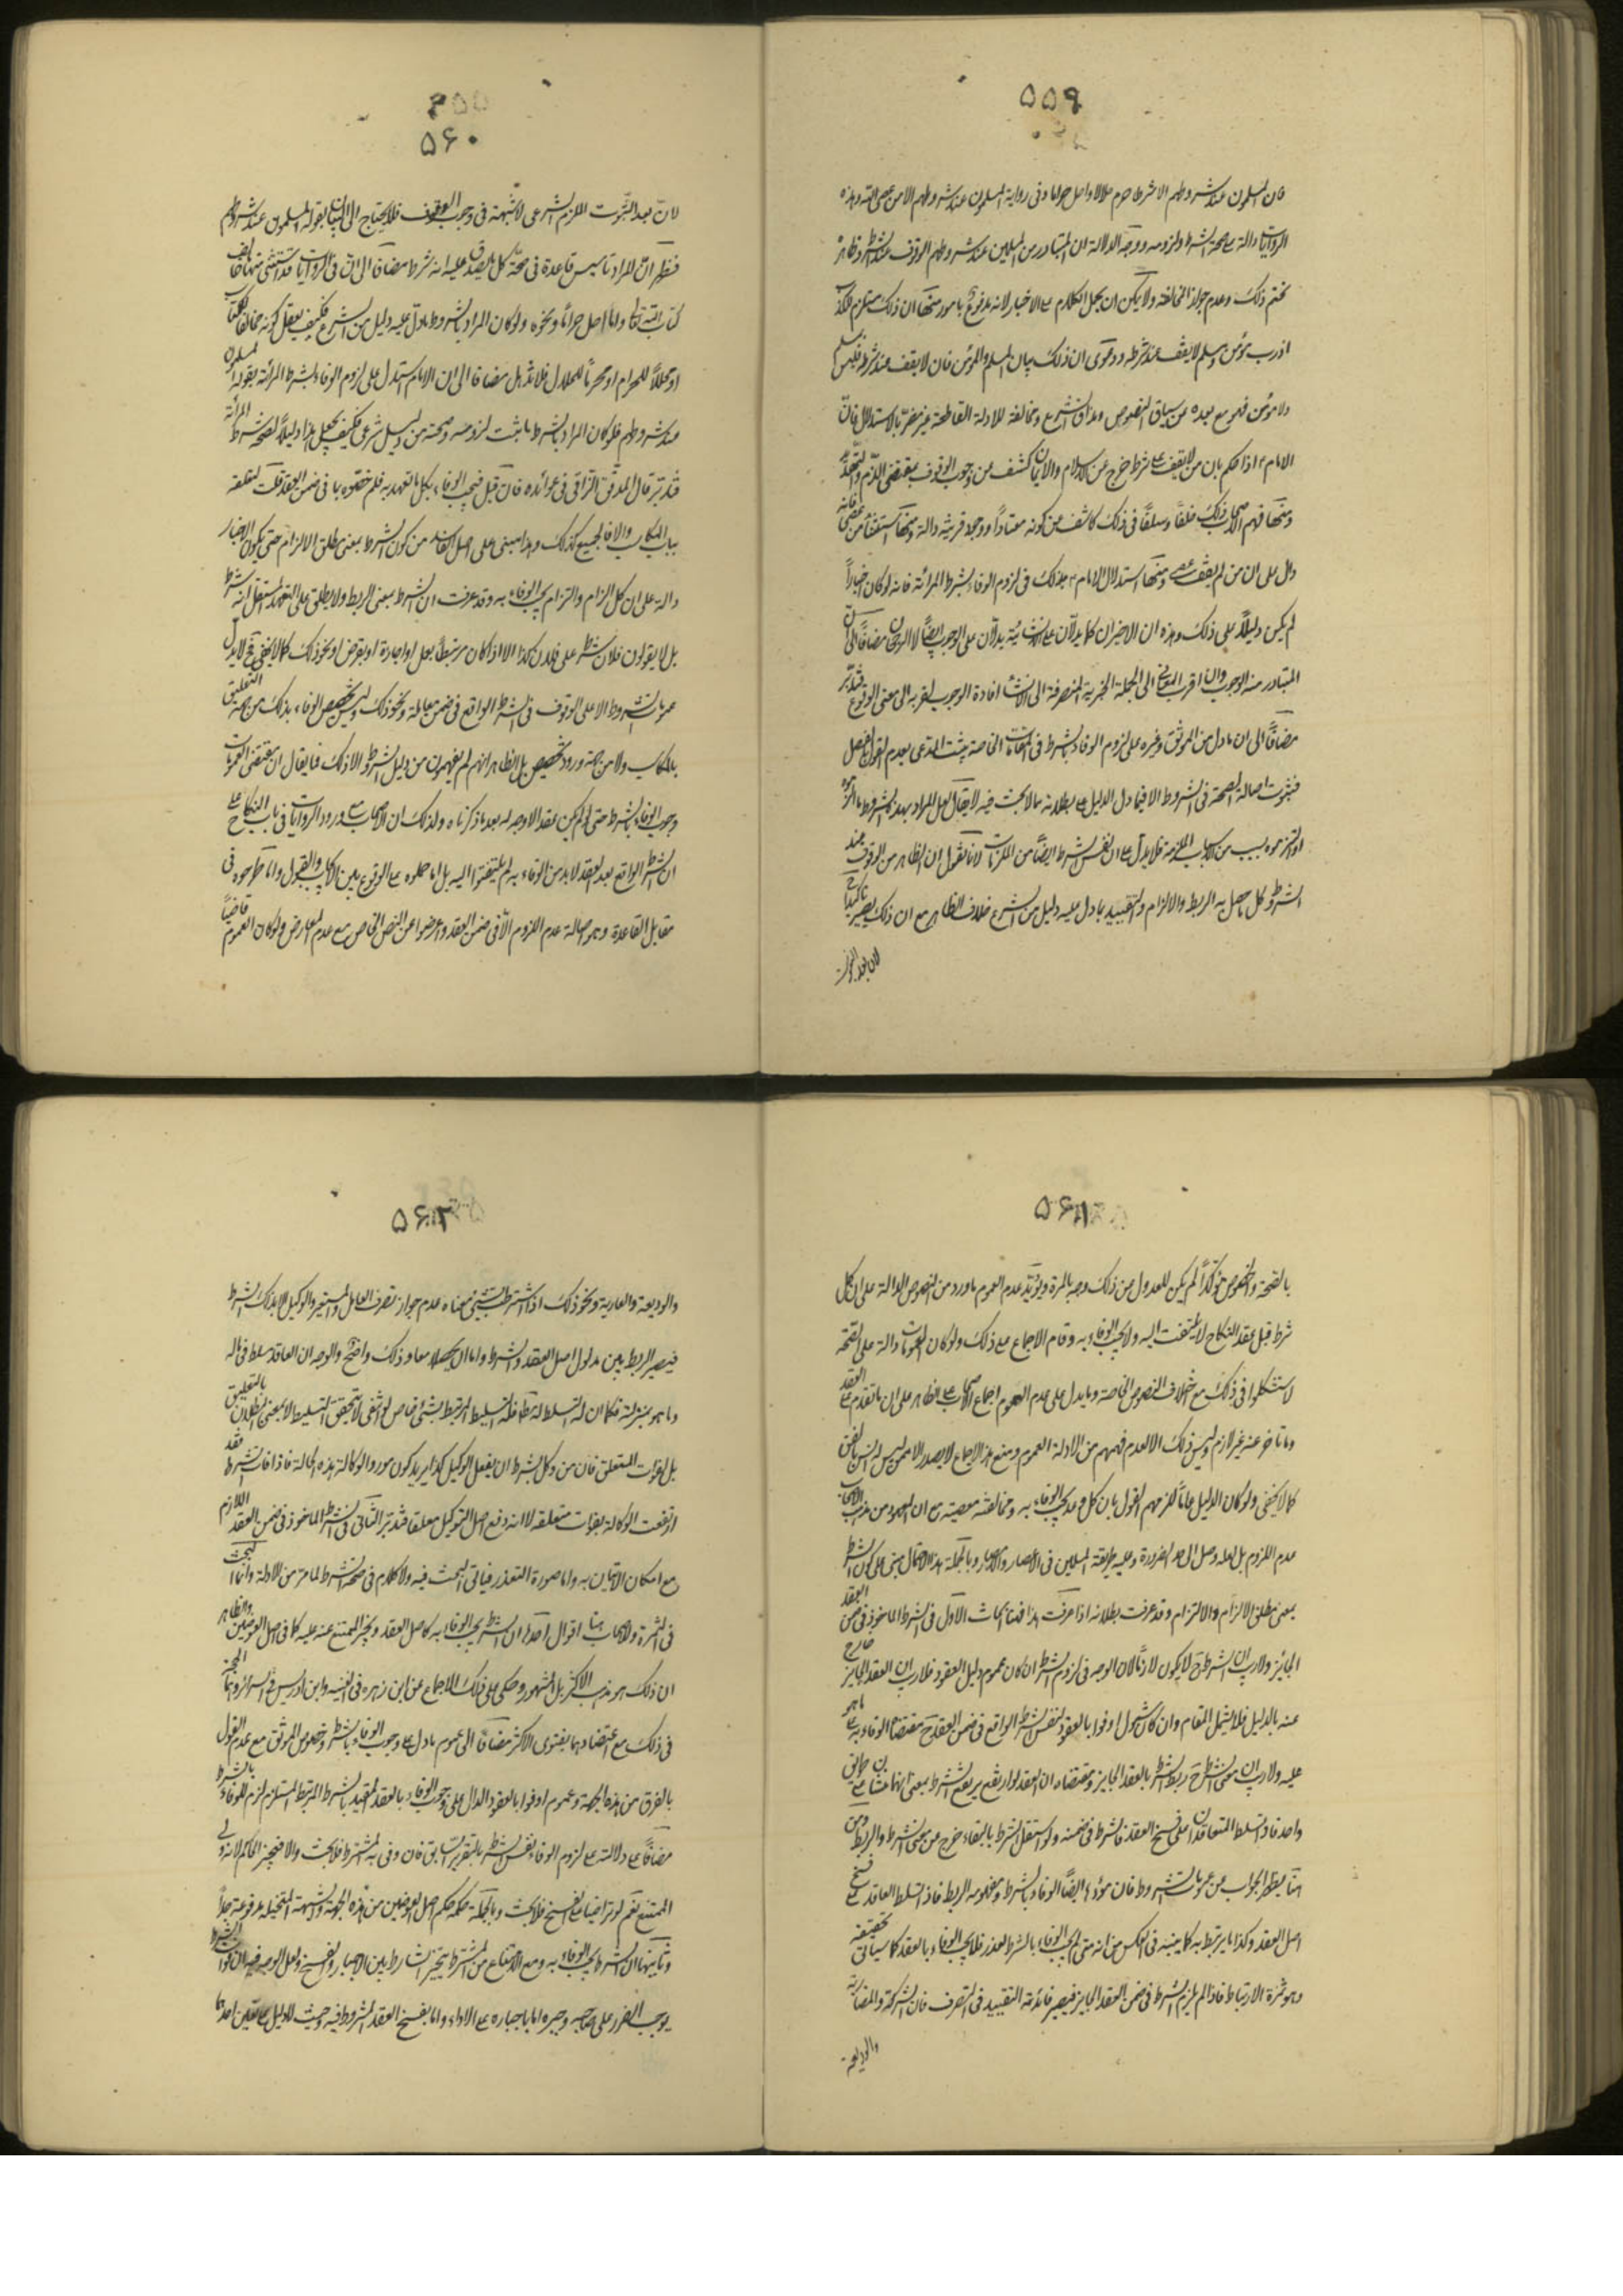 ۵۵۹
فان المسلمون عند شروطهم الا شرطا حرم حلالا واحل حراما وفى رواية المسلمون عند شروطهم الا من عصى الله وهذه
الروايات دالة على صحة الشرط ولزومه ووجه الدلالة ان المتبادر من المسلمين عند شروطهم الوقوف عند الشرط وظاهره
تحتم ذلك وعدم جواز المخالفة ولا يمكن ان يحمل الكلام على الاخبار لانه مدفوع بامور منها ان ذلك مستلزم للكذب
اذ رب مؤمن ومسلم لا يقف عند شرطه ودعوى ان ذلك بيان المسلم والمؤمن فان لا يقف عند شرطه فليس بمسلم
ولا مؤمن فهو مع بعده عن سياق النصوص ومذاق الشرع ومخالفته للادلة القاطعة غير مضر بالاستدلال فان
الامام ع اذا حكم بان من لا يقف على شرط خرج عن الاسلام والايمان كشف عن وجوب الوقوف بمقتضى اللزوم والتعهد
ومنها فهم الاصحاب ذلك خلفا وسلفا فى ذلك كاشف عن كونه معتادا ووجود قرينة دالة ومنها استثناء من عصى فانه
دال على ان من لم يقف عصى ومنها استدلال الامام ع بذلك فى لزوم الوفاء بشرط المرأة فانه لو كان اخبارا
لم يكن دليلا على ذلك وهذه ان الاخيران كما يدلان على الانشائية يدلان على الوجوب ايضا لا الرجحان مضافا الى ان
المتبادر منه الوجوب وان اقرب المعانى الى الجملة الخبرية المنصرفة الى الانشاء افادة الوجوب لقربه الى معنى الوقوع فتدبر
مضافا الى ان ما دل من الموثق وغيره على لزوم الوفاء بالشرط فى المقامات الخاصة يثبت المدعى بعدم القول بالفصل
فثبوت اصالة الصحة فى الشروط الا فيما دل الدليل على بطلانه مما لا بحث فيه لا يقال لعل المراد بهذه الشروط ما الزموه
او التزموه بسبب من الاسباب الملزمة فلا يدل على ان نفس الشرط ايضا من الملزمات لانا نقول ان الظاهر من الوقوف عند
الشرط وكل ما حصل به الربط والالزام والتقييد بما دل عليه دليل من الشرع خلاف الظاهر مع ان ذلك يصير تاكيدا
لان بعد الثبوت
۵۶۰
لان بعد الثبوت اللزوم الشرعى لا شبهة فى وجوب الوقوف فلا يحتاج الى البيان بقوله المسلمون عند شروطهم
فظهر ان المراد تاسيس قاعدة فى صحة كل ما يصدق عليه انه شرط مضافا الى ان فى الروايات قد استثنى منها ما خالف
كتاب الله تعالى واما احل حراما ونحوه ولو كان المراد بالشروط ما دل عليه دليل من الشرع فكيف يعقل كونه مخالفا للكتاب
او محللا للحرام او محرما للحلال فلا تذهل مضافا الى ان الامام استدل على لزوم الوفاء بشرط المرأة بقوله المسلمون
عند شروطهم فلو كان المراد بالشرط ما ثبت لزومه وصحته من دليل شرعى فكيف يجعل هذا دليلا لصحة شرط المرأة
فتدبر قال المدقق النراقى فى عوائده فان قيل فيجب الوفاء بكل ما تعهد به فلم خصوه بما فى ضمن العقد قلت لتعلقه
بباب المكاسب والا فالجميع كذلك وهذا مبنى على اصل كفانا من كون الشرط بمعنى مطلق الالزام حتى يكون الاخبار
دالة على ان كل الزام والتزام يجب الوفاء به وقد عرفت ان الشرط بمعنى الربط ولا يطلق على التعهد المستقل انه شرط
بل لا يقولون فلان شرط على فلان كذا الا اذا كان مرتبطا بعمل او اجارة او بقرض او نحو ذلك كما لا يخفى فح لا يدل
عمومات الشروط الا على الوقوف فى الشرط الواقع فى ضمن معاملة ونحو ذلك وليس تخصيص الوفاء بذلك من جهة التعليق
بالمكاسب ولا من جهة ورود تخصيص بل الظاهر انهم لم يفهمون من دليل الشرط الا ذلك فما يقال ان مقتضى العمومات
وجوب الوفاء بالشرط حتى لو لم يكن عقد لا وجه له بعد ما ذكرناه ولذلك ان الاصحاب مع ورود الروايات فى باب النكاح على
ان الشرط الواقع بعد العقد لا بد من الوفاء به لم يلتفتوا اليه بل اما حملوه على الوقوع بين الايجاب والقبول واما طرحوه فى
مقابل القاعدة وهو اصالة عدم اللزوم الا فى ضمن العقد واعرضوا عن النص الخاص مع عدم المعارض ولو كان العموم قاضيا
۵۶۱
بالصحة والخصوص مؤكدا لم يكن للعدول عن ذلك وجه بالمرة ويؤيد عدم العموم ما ورد من النصوص الدالة على ان كل
شرط قبل عقد النكاح لا يلتفت اليه ولا يجب الوفاء به وقام الاجماع على ذلك ولو كان العمومات دالة على الصحة
لاستشكلوا فى ذلك مع اختلاف النصوص الخاصة ومما يدل على عدم العموم اجماع الاصحاب على الظاهر على ان ما تقدم على العقد
وما تاخر عنه غير لازم وليس ذلك الا لعدم فهمهم من الادلة العموم ومنع هذا الاجماع لا يصدر الا ممن ليس له انس بالفن
كما لا يخفى ولو كان الدليل عاما للزمهم القول بان كل وعد يجب الوفاء به ومخالفته معصية مع ان المعهود من مذهب الاصحاب
عدم اللزوم بل لعله وصل الى حد الضرورة وعليه طريقة المسلمين فى الاعصار والامصار وبالجملة هذا الاحتمال مبنى على كون الشرط
بمعنى مطلق الالزام والالتزام وقد عرفت بطلانه اذا عرفت هذا فهنا ابحاث الاول فى الشرط الماخوذ فى ضمن العقد
الجائز ولا ريب ان الشرط ح لا يكون لازما لان الوجه فى لزوم الشرط ان كان عموم دليل العقود فلا ريب ان العقد الجايز خارج
عنه بالدليل فلا يشمل المقام وان كان شمول اوفوا بالعقود لنفس الشرط الواقع فى ضمن العقد ح مقتضاه الوفاء به على ما هو
عليه ولا ريب ان معنى الشرط ح ربط الشرط بالعقد الجايز ومقتضاه ان العقد لو ارتفع يرتفع الشرط بمعنى انهما متساوقان
واحد فاذا تسلط المتعاقدان على فسخ العقد فالشرط فى ضمنه ولو استقل الشرط بالبقاء خرج من معنى الشرط والربط ومن
هنا يظهر الجواب عن عمومات الشروط فان مؤداها ايضا الوفاء بالشرط ومفهومه الربط فاذا تسلط العاقد على فسخ
اصل العقد وكذا ما يرتبط به كما يتبينه فى العكس من انه متى لم يجب الوفاء بالشرط لعذر فلا يجب الوفاء بالعقد كما سياتى تحقيقه
وهو ثمرة الارتباط فاذا لم يلزم الشرط فى ضمن العقد الجايز فيصير فائدته التقييد فى التصرف فان الشركة والمضاربة
والوديعة
۵۶۲
والوديعة والعارية ونحو ذلك اذا اشترط بشيئ معناه عدم جواز تصرف العامل والمستعير والوكيل الا بذلك الشرط
فيصير الربط بين مدلول اصل العقد والشرط واما ان يحصلا معا وذلك واضح والوجه ان العاقد مسلط فى ماله
وما هو بمنزلته فكما ان له التسلط المطلق فله التسليط المرتبط بشيئ خاص لو انتفى لا يتحقق التسليط لا بمعنى البطلان بالتعليق
بل لفوات المتعلق فان من وكل بشرط ان يفعل الوكيل كذا يريد كون مورد الوكالة هذه الحالة فاذا فات الشرط فقد
ارتفعت الوكالة بفوات متعلقه لا انه وقع اصل التوكيل معلقا فتدبر الثانى فى الشرط الماخوذ فى ضمن العقد اللازم
مع امكان الاتيان به واما صورة التعذر فياتى البحث فيه ولا كلام فى صحة الشرط لما مر من الادلة وانما البحث
فى الثمرة وللاصحاب هنا اقوال احدها ان الشرط يجب الوفاء به كاصل العقد ويجبر الممتنع عنه عليه كما فى اصل العوضين والظاهر
ان ذلك هو مذهب الاكثر بل المشهور وحكى على ذلك الاجماع عن ابن زهره فى الغنيه وابن ادريس فى السرائر وهما الحجة
فى ذلك مع اعتضادهما بفتوى الاكثر مضافا الى عموم ما دل على وجوب الوفاء بالشرط وخصوص الموثق مع عدم القول
بالفرق من هذه الجهة وعموم اوفوا بالعقود الدال على وجوب الوفاء بالعقد المقيد بالشرط المرتبط المستلزم لزوم الوفاء بالشرط
مضافا على دلالته على لزوم الوفاء بنفس الشرط بالتقرير السابق فان وفى به المشترط فلا بحث والا فيجبره الحاكم لانه ولى
الممتنع نعم لو تراضيا على الفسخ فلا بحث وبالجملة حكمه حكم اصل العوضين من هذه الجهة والشبهة المتخيلة مدفوعة جدا
وثانيها ان الشرط يجب الوفاء به ومع الامتناع من المشترط يتخير المشارط بين الاجبار والفسخ ولعل الوجه فيه ان فوات الشرط
يوجب الضرر على صاحبه وجبره اما باجباره على الاداء واما بفسخ العقد المشروط فيه وحيث لا دليل على تعيين احدهما